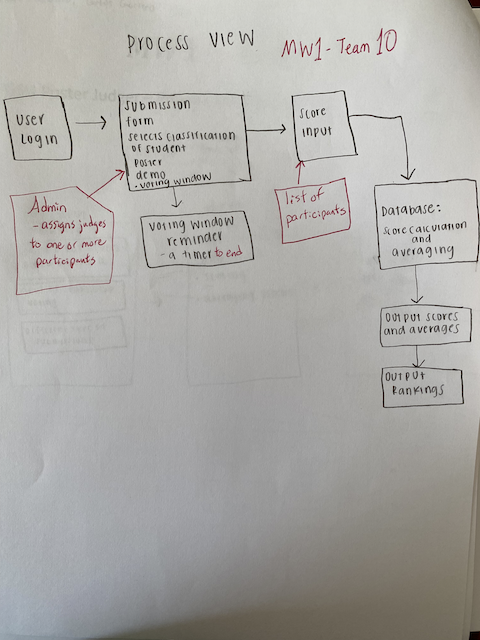 Process view MW1-Team 10
User
Login
Submission
form
selects classification
of student
poster
demo
- voting window
Score
input
Admin
- assigns judges
to one or more
participants
voting window
reminder
- a timer to end
list of
participants
Database:
score calculation
and
averaging
output scores
and averages
output
Rankings